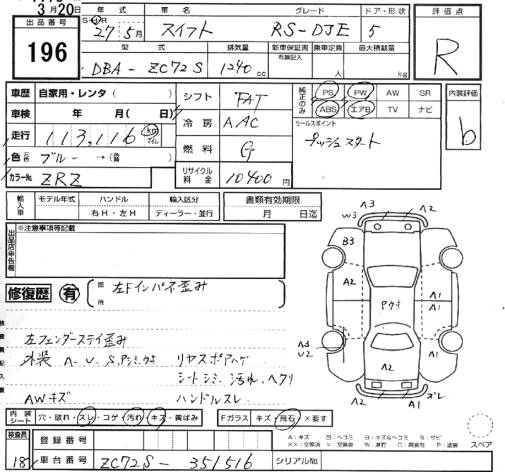 3月20日
出品番号
196
年式 車名 グレード ドア・形状
27 5月 スイフト RS-DJE 5
型式 排気量 新車保証書 乗車定員 最大積載量
有無記入
DBA-ZC72S 1240cc 人 kg
評価点
R
車歴 自家用・レンタ( )
車検 年 月( 日)
走行 113,116 km マイル
色 ブルー →(替
カラーNo. ZRZ
シフト FAT
冷房 AAC
燃料 G
リサイクル料金 10400円
純正のみ
PS PW AW SR
ABS エアB TV ナビ
セールスポイント
プッシュスタート
内装評価
b
輸入車
モデル年式 ハンドル 輸入区分
右H・左H ディーラー・並行
書類有効期限
月 日迄
出品店申告欄
※注意事項等記載
修復歴 有
箇所
左Fインパネ歪み
検査員記入欄
左フェンダーステイ歪み
外装 A.U.S.Pシミ.ウキ リヤスポアハゲ
シートシミ.汚れ.ヘタリ
AWキズ ハンドルスレ
A3
W3 A2
B3
A2 A1
Pウキ
A2 A1
A3
U2
A2
A2 A1 ズレ
内装シート
穴・破れ・スレ・コゲ・汚れ・キズ・黄ばみ
Fガラス キズ・飛石・×要す
検査員
18
登録番号
車台番号 ZC72S-351516 シリアルNo.
A:キズ U:ヘコミ B:キズ&ヘコミ S:サビ
スペア